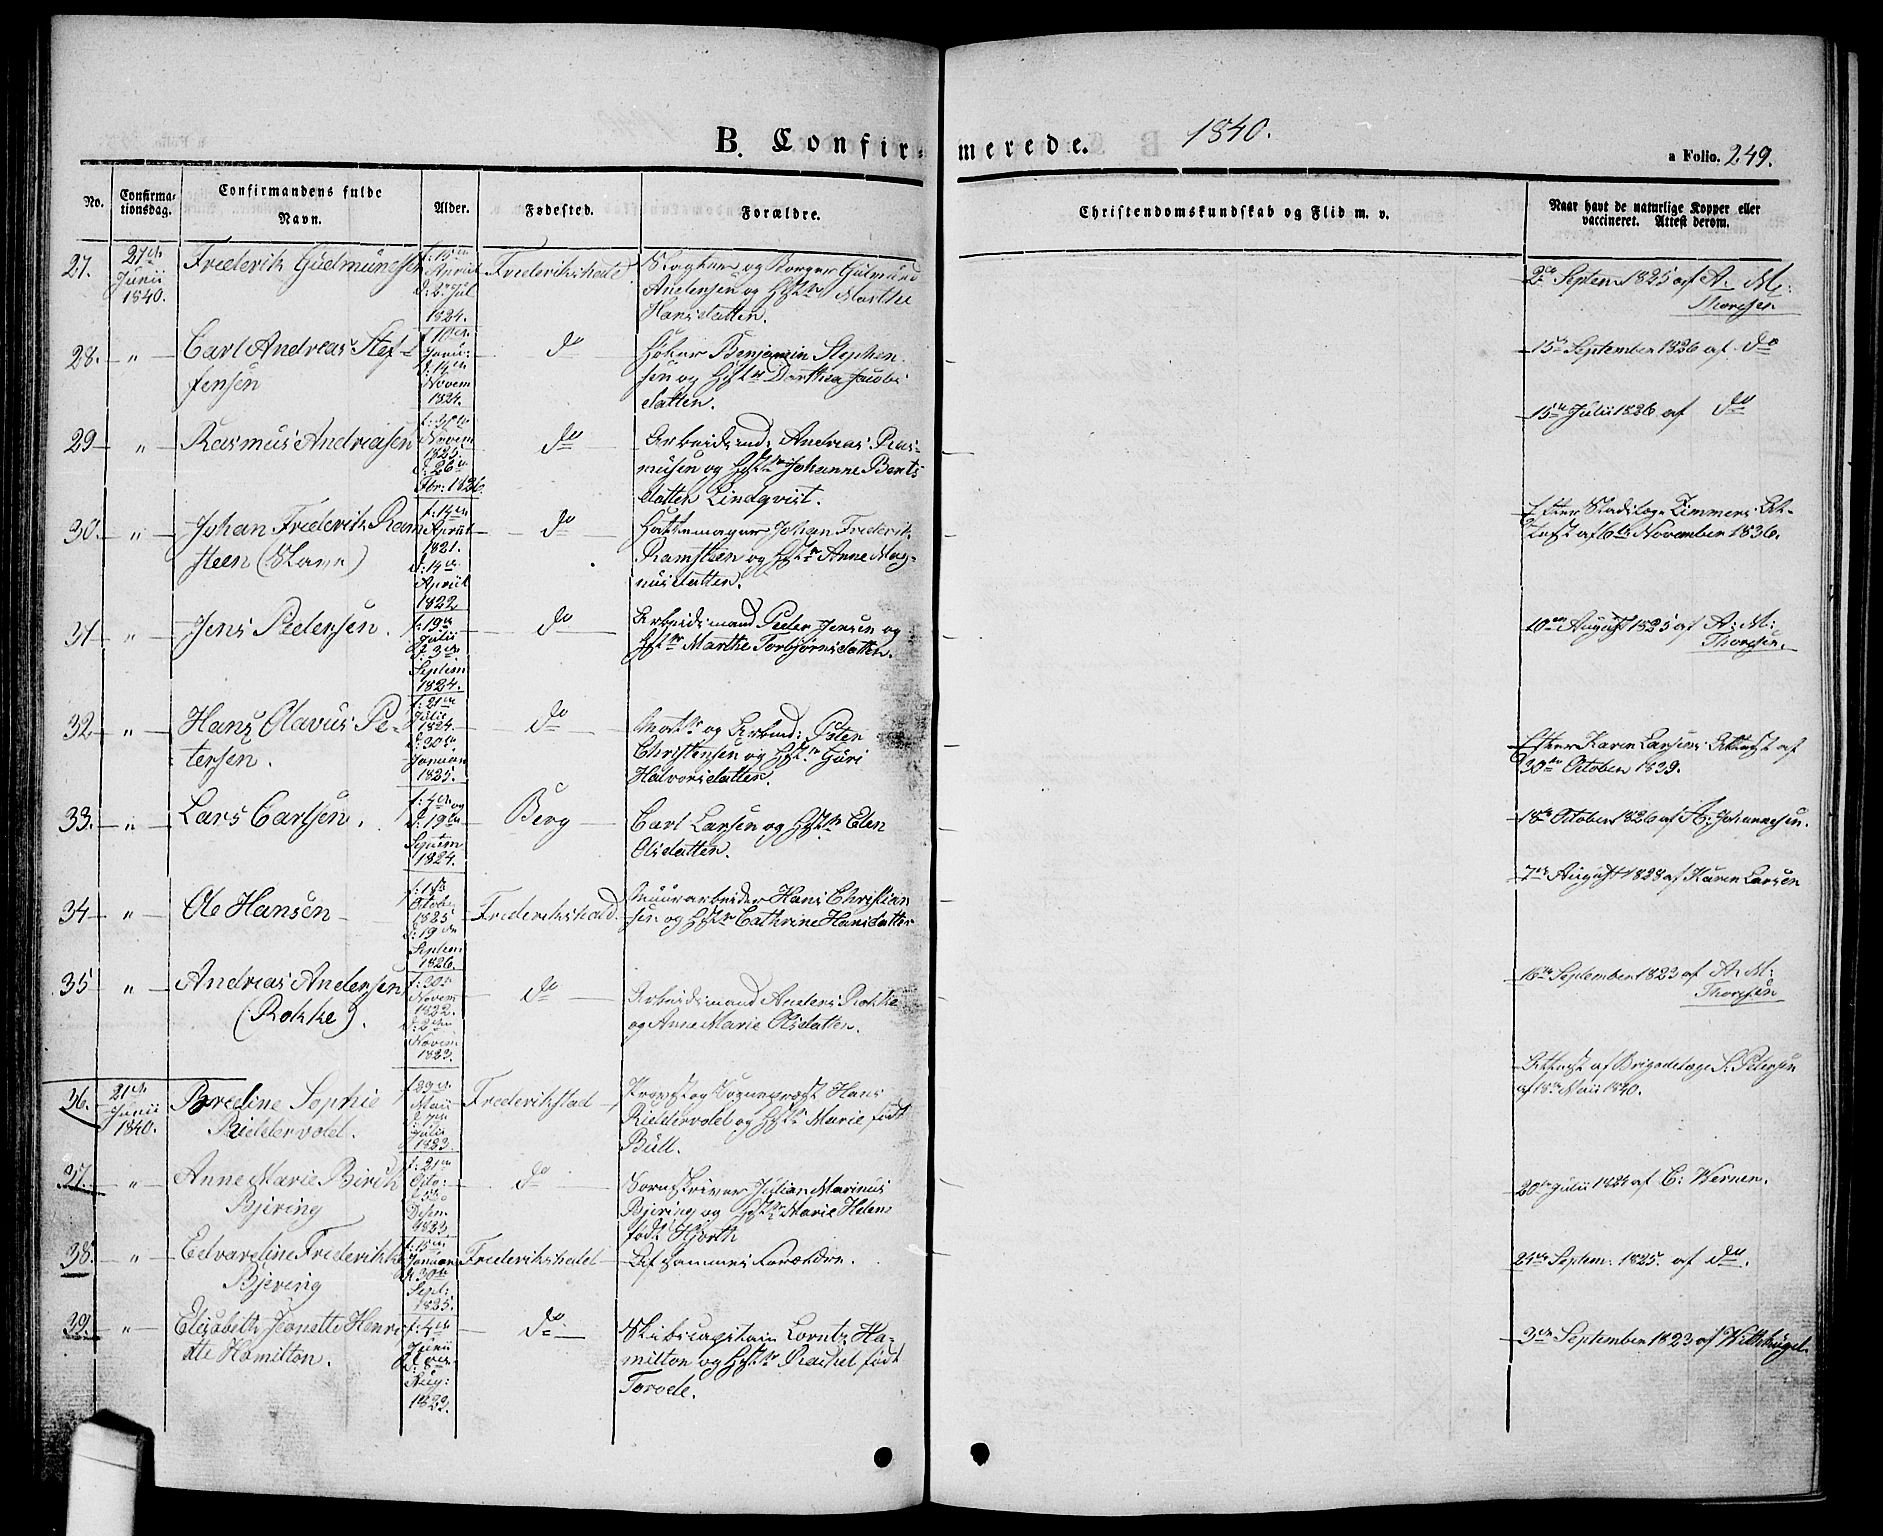 B. Confirmerede. 1840.
a Folio. 249.
No. Confirmationsdag. Confirmandens fulde Navn. Alder. Fødested. Forældre. Christendomskundskab og Flid m. v. Naar havt de naturlige Kopper eller vaccineret. Attest derom.
27. 27de Junii 1840. Frederik Gudmundsen f: 15de April d: 2de Jul 1824. Frederikshald Slagter og Borger Gudmund
Andersen og Hst Marthe
Hansdatter.
2de Septem 1825 af A. M:
Thoresen
28. " Carl Andreas Steffensen f 10de Janu: d: 14de Novem 1824. do Høker Benjamin Stephensen og Hst Dorthea Jacobsdatter.
15de September 1826 af do
29 " Rasmus Andreasen Novem 1825. d: 26de Fbr: 1826. do Arbeidsmd: Andreas Rasmusen og Hst Johanne Bentsdatter Lindqvist.
15de Julii 1826 af do
30. " Johan Frederik Ramsteen f: 14de April 1821. d: 14de April 1822 do Hattemager Johan Frederik
Ramsteen og Hst Anne Magnusdatter.
Efter Stadslæge Zimmers Attest af 6te November 1836.
31 " Jens Pedersen. f: 19de Julii d 3de Septem 1824. do Arbeidsmand Peder Jensen og
Hst Marthe Torbjørnsdatter.
10de August 1825 af A: M:
Thoresen.
32 " Hans Olavus Petersen. f: 21de Julii 1824. d: 30te Januar 1825. do og Arbmd: Peter
Christensen og Hst Guri
Halvorsdatter.
Efter Karen Larsens Attest af
30te October 1839.
33. " Lars Carlsen. f: 4de og d: 19de Septem 1824. Berg Carl Larsen og Hst Elen
Olsdatter.
18de October 1826 af A: Johannesen.
34 " Ole Hansen f: 1ste Octobr 1825 d: 19de Septem 1826. Frederikshald. Muurarbeider Hans Christiansen og Hst Cathrine Hansdatter
7de August 1828 af Karen Larsen
35 " Andreas Andersen
(Rokke). f: 30te Novem 1822. d: 2den Novem 1823. do Arbeidsmand Anders Rokke
og Anne Marie Olsdatter.
18de September 1823 af A. M:
Thoresen
36. 21de Junii 1840. Bredine Sophie
Riddervold. Maii Julii 1823. Frederikstad Provst og Sognepræst Hans
Riddervold og Hst Marie født
Bull.
Attest af Brigadelæge S. Petersen
af 18de Maii 1840.
37. " Anne Marie Birch
Bjering f: 21de Octo: Desem 1823. do Sorenskriver Julian Marinus
Bjering og Hst Marie Helene
født Hjorth
20de Julii 1824 af C: Werner.
38. " Edvardine Frederikke
Bjering f: 15de Januar d 30te Sept: 1825. Frederikshald Af sammes Forældre.
24de Septem: 1825. af do.
39. " Elisabeth Jeanette Henriette Hamilton. f: 4de Junii Aug: 1823. do Skibscapitain Lorntz Hamilton og Hst Rachel født
Torvde.
3de September 1823 af Witthügel